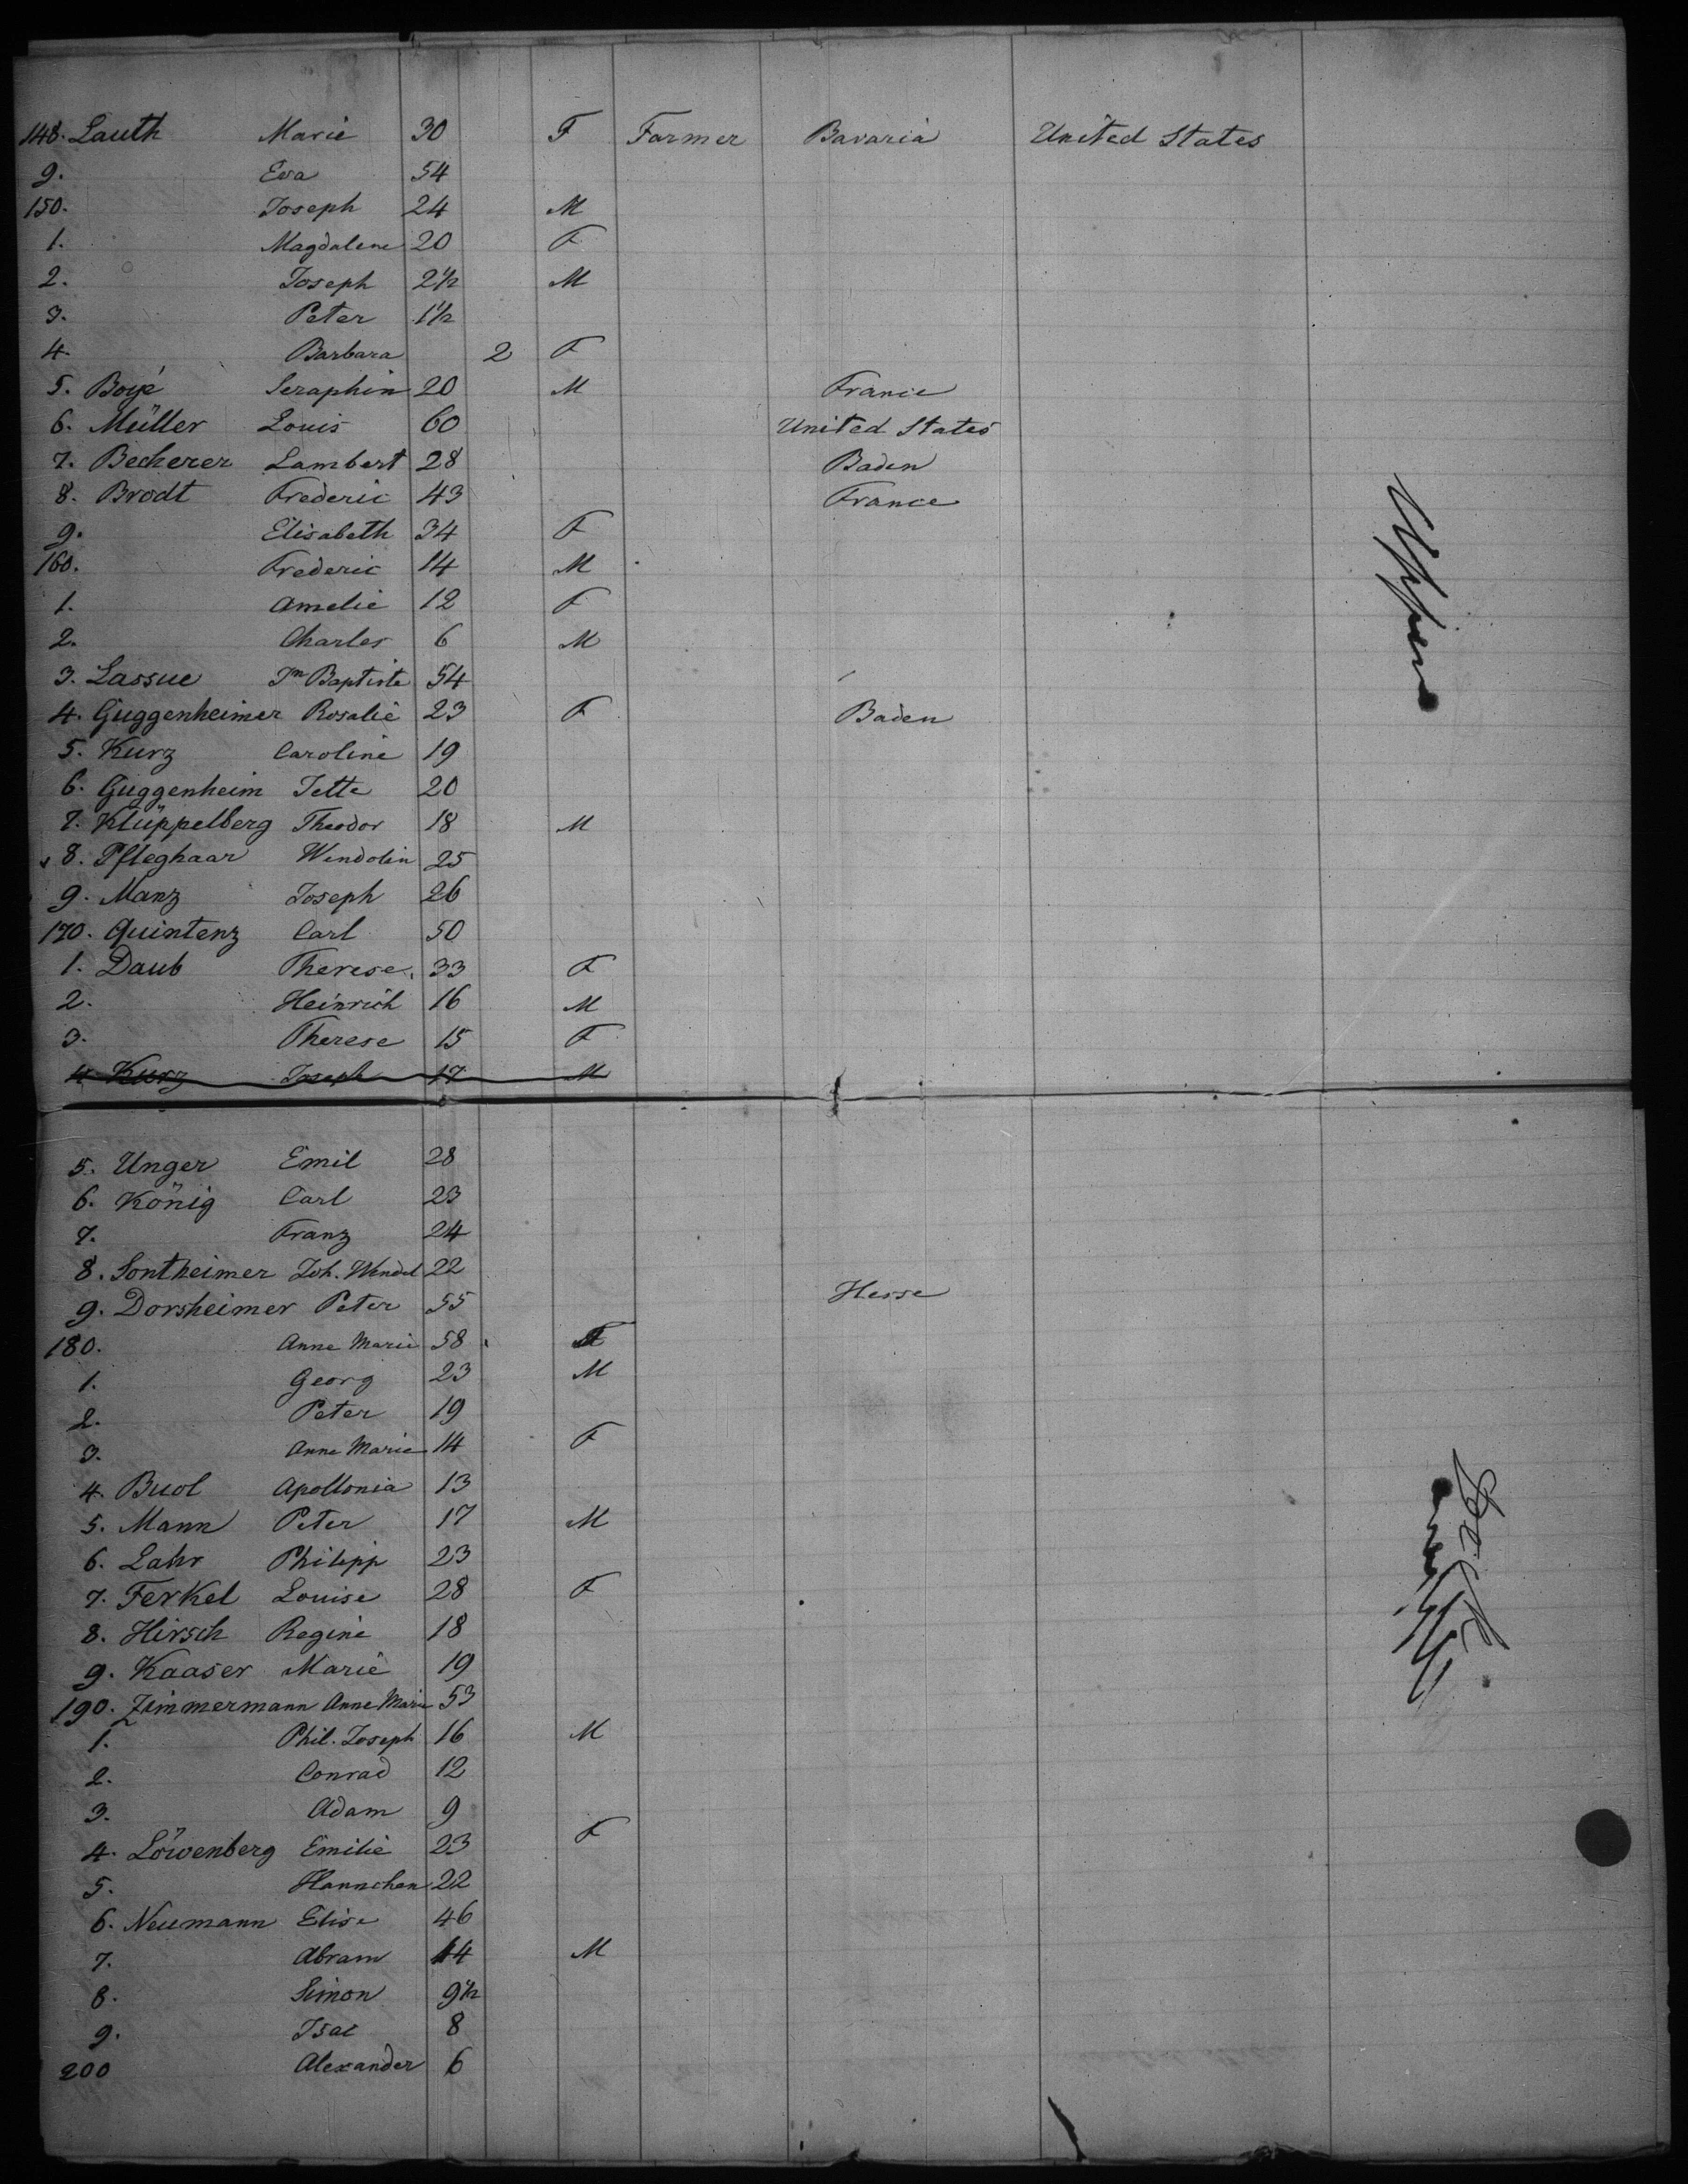 148. Lauth Marie 30 F Farmer Bavaria United States
9. Eva 54
150. Joseph 24 M
1. Magdalene 20 F
2. Joseph 2½ M
3. Peter 1½
4. Barbara 2 F
5. Boyé Seraphin 20 M France
6. Müller Louis 60 United States
7. Becherer Lambert 28 Baden
8. Brodt Frederic 43 France
9. Elisabeth 34 F
160. Frederic 14 M
1. Amelie 12 F
2. Charles 6 M
3. Lassue Jn Baptiste 54
4. Guggenheimer Rosalie 23 F Baden
5. Kurz Caroline 19
6. Guggenheim Jette 20
7. Klüppelberg Theodor 18 M
8. Pfleghaar Wendolin 25
9. Manz Joseph 26
170. Quintenz Carl 50
1. Daub Therese 33 F
2. Heinrich 16 M
3. Therese 15 F
4. Kurz Joseph 17 M
5. Unger Emil 28
6. König Carl 23
7. Franz 24
8. Sontheimer Joh. Wendel 22
9. Dorsheimer Peter 55 Hesse
180. Anne Marie 58 F
1. Georg 23 M
2. Peter 19
3. Anne Marie 14 F
4. Buol Apollonia 13
5. Mann Peter 17 M
6. Lahr Philipp 23
7. Ferkel Louise 28 F
8. Hirsch Regine 18
9. Kaaser Marie 19
190. Zimmermann Anne Marie 53
1. Phil. Joseph 16 M
2. Conrad 12
3. Adam 9
4. Löwenberg Emilie 23 F
5. Hannchen 22
6. Neumann Elise 46
7. Abram 14 M
8. Simon 9½
9. Isac 8
200 Alexander 6
Upper